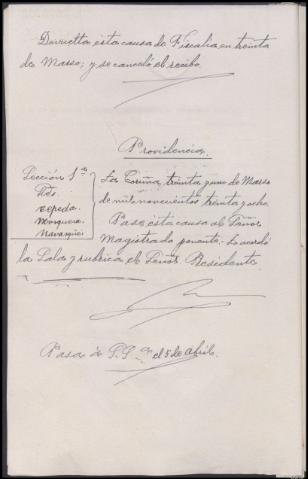 Devuelta esta causa de Fiscalia en treinta
de Marzo; y se canceló el recibo.
Providencia.
Sección 1ª
Cepeda
Mosquera
La Coruña, treinta y uno de Marzo
de mil novecientos treinta y ocho
Pase esta causa al Señor
Magistrado ponente. Lo acordó
la Sala y rubrica el Señor Presidente.
Pasa á S.Sª el 5 de abril.